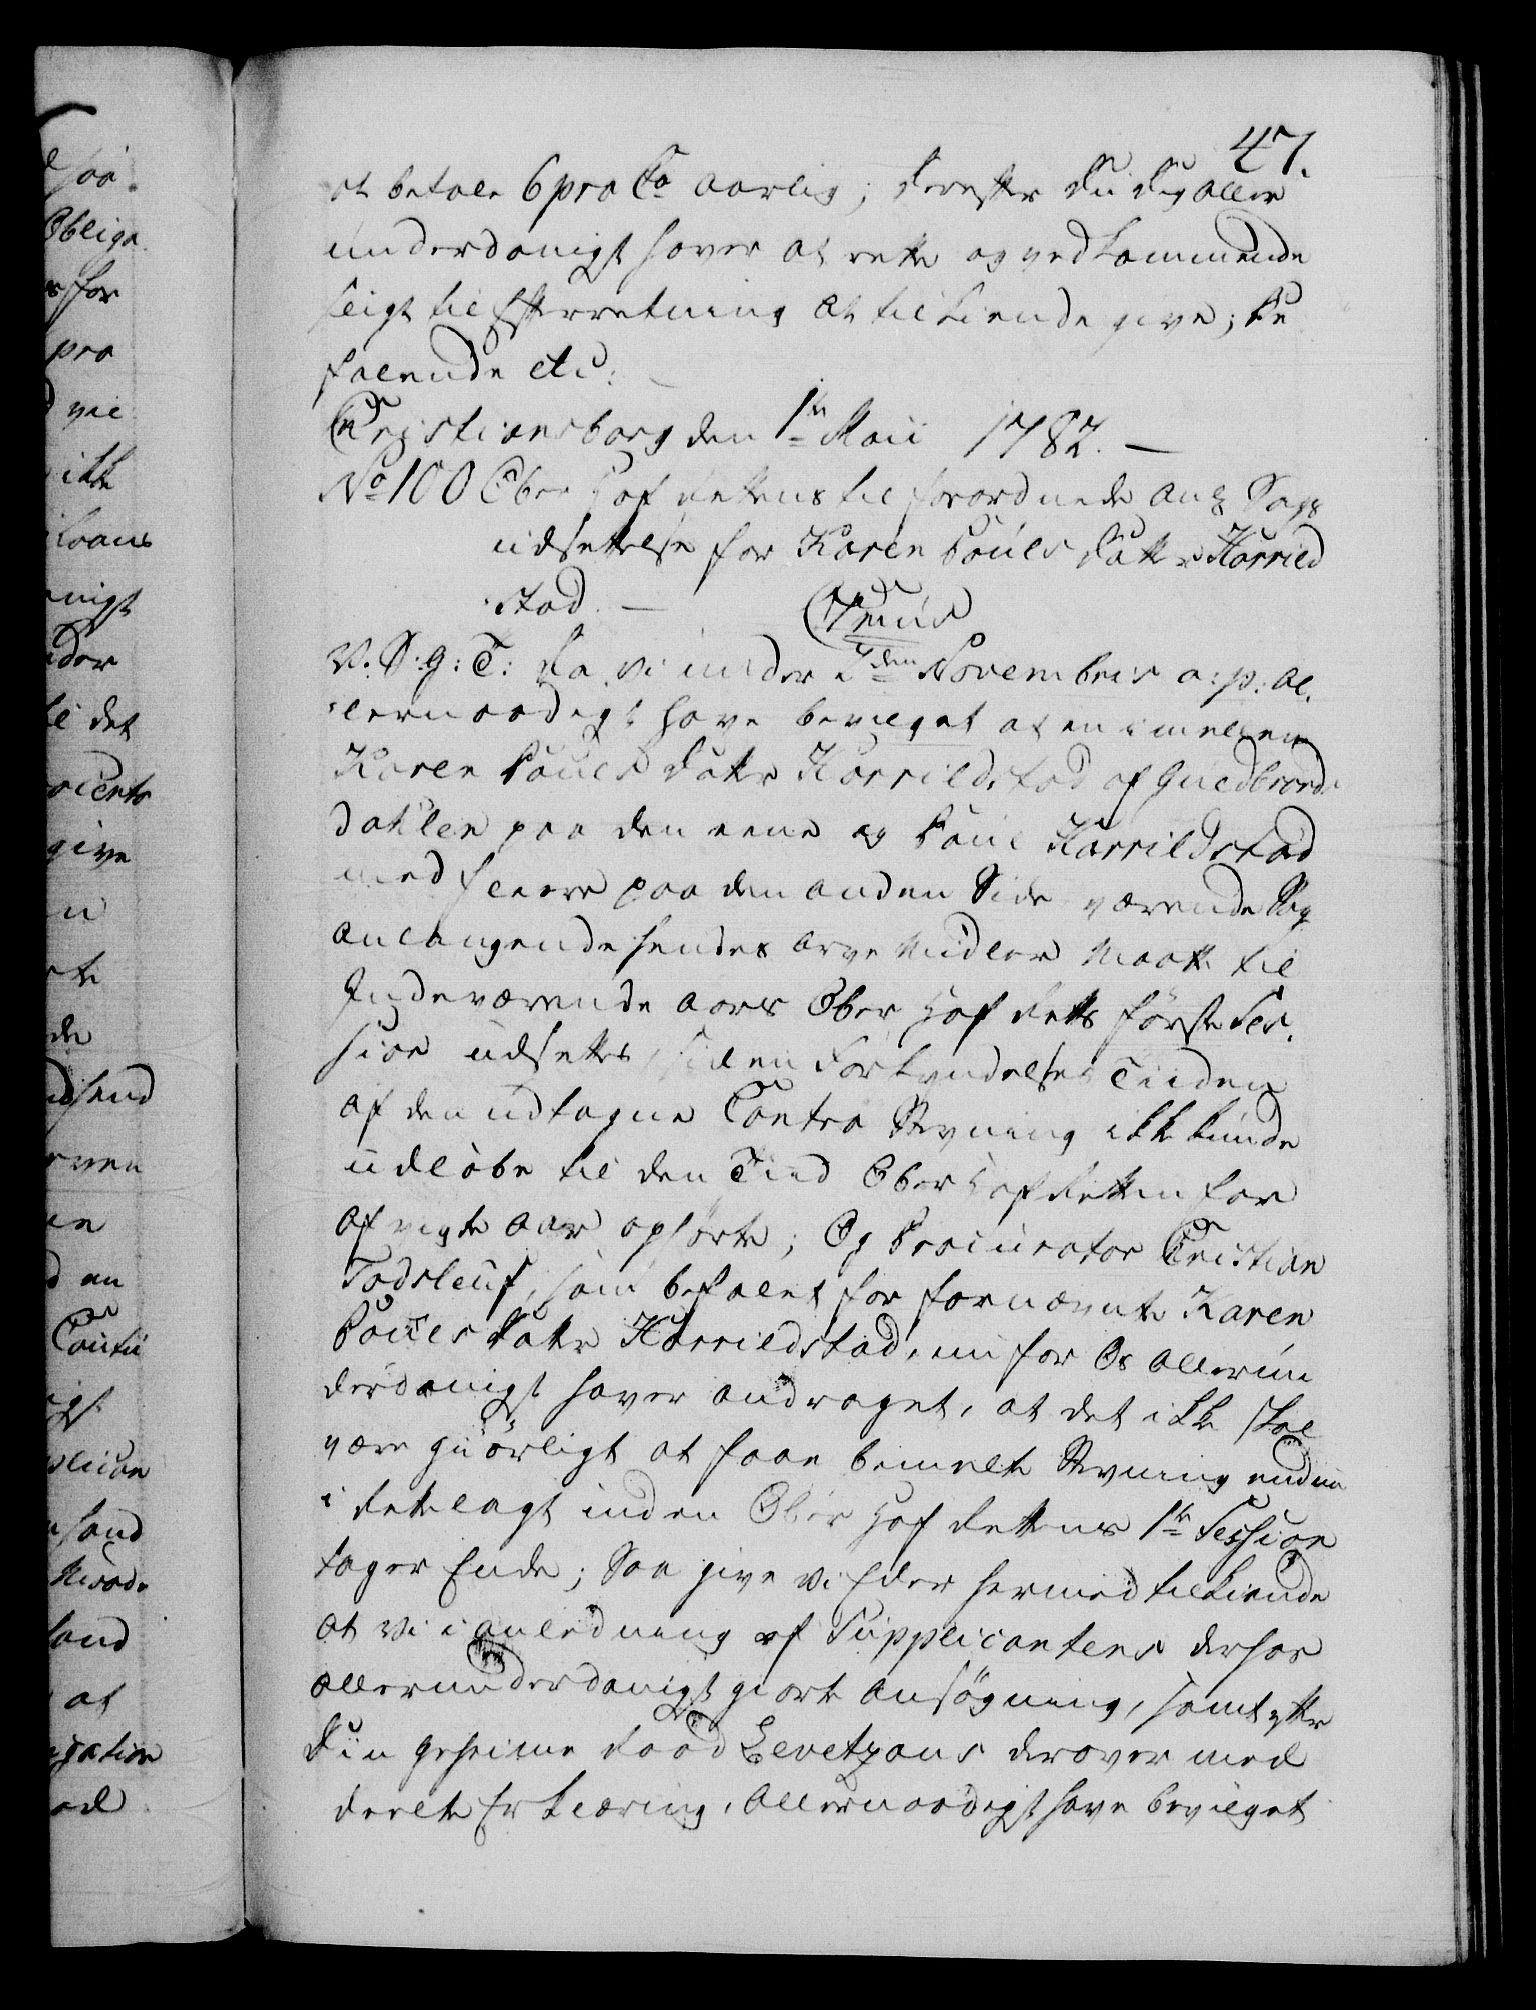 47.
at betale 6 pro Co aarlig; derefter du dig aller
underdanigst haver at rette og vedkommende
sligt til Efterretning at tilkiende give; Be
falende etc:
Christiansborg den 1te Maii 1782. —
No 100 Ober Hof Rettens tilforordnede ang Sags
udsettelse for Karen Pouls Datter Harrild
stad. —
V. S: g: T: Da vi under 7den Novembris a: p: al,
lernaadigst have bevilget at en imellem
Karen Pouls Datter Harrildstad af Guldbrands
dahlen paa den eene og Poul Harrildstad
med fleere paa den anden Side værende Sag
anlangende hendes Arve Midler maatte til
Indeværende Aars Ober Hof Retts første Ses,
sion udsettes, siden Forkyndelses Tiiden
af den udtagne Contra Stevning ikke kunde
udløbe til den Tiid Ober Hof Retten for
afvigte Aar ophørte; Og Procurator Christian
som befalet for fornævnte Karen
Pouls Datter Harrildstad, nu for Os allerun
derdanigst haver andraget, at det ikke skal
være giörligt at faae bemelte Stevning endnu
i Rette lagt inden Ober Hof Rettens 1te Session
tager Ende; Saa give vi Eder hermed tilkiende
at vi i anledning af Supplicantens derfor
allerunderdanigst giorte Ansögning, samt efter
Din Geheime Raad Levetzous derover med
deelte Erklæring, Allernaadigst have bevilget